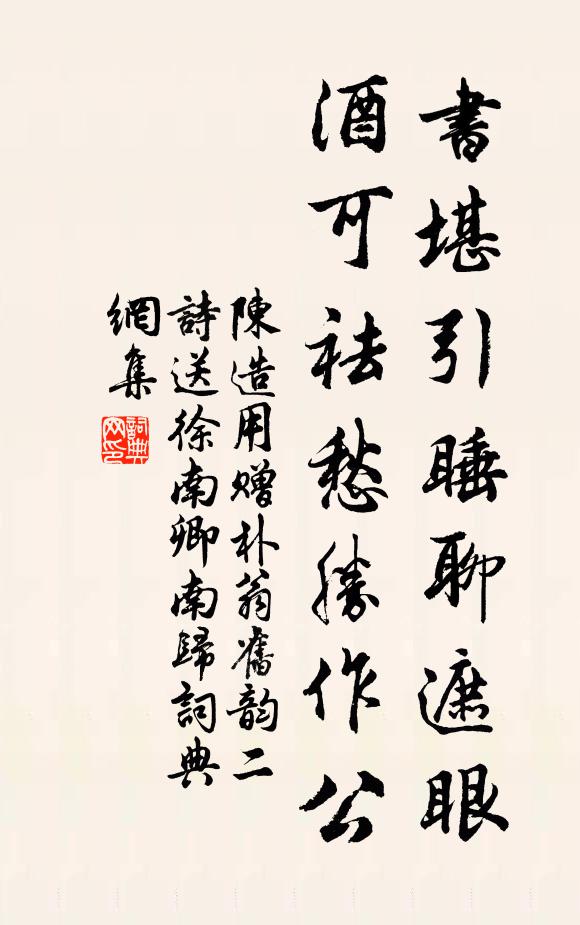 書堪引睡聊遮眼
酒可祛愁勝作公
陳造用赠朴翁舊韵二
詩送徐南卿南歸詞典
網集
詞典網印